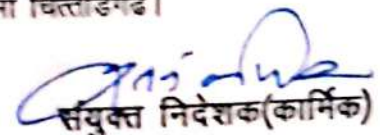 चित्तौडगढ।
संयुक्त निदेशक(कार्मिक)